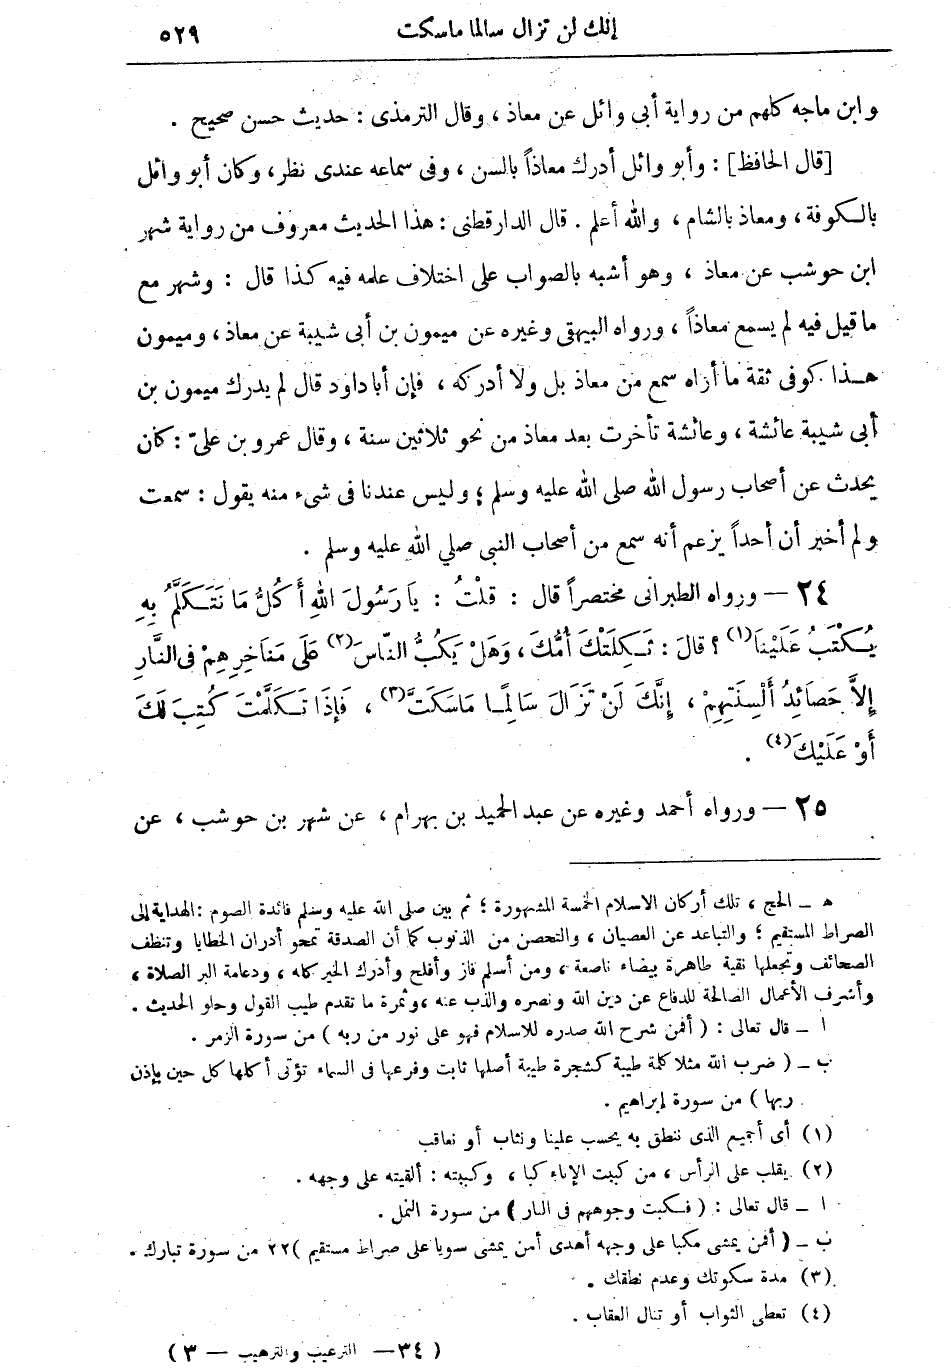 إنك لن تزال سالما ماسكت ٥٢٩
وابن ماجه كلهم من رواية أبى وائل عن معاذ ، وقال الترمذى : حديث حسن صحيح .
[قال الحافظ] : وأبو وائل أدرك معاذاً بالسن ، وفى سماعه عندى نظر، وكان أبو وائل
بالكوفة ، ومعاذ بالشام ، والله أعلم . قال الدارقطنى : هذا الحديث معروف من رواية شهر
ابن حوشب عن معاذ ، وهو أشبه بالصواب على اختلاف علمه فيه كذا قال : وشهر مع
ماقيل فيه لم يسمع معاذاً ، ورواه البيهقى وغيره عن ميمون بن أبى شيبة عن معاذ ، وميمون
هـذا كوفى ثقة ما أراه سمع من معاذ بل ولا أدركه ، فإن أبا داود قال لم يدرك ميمون بن
أبى شيبة عائشة ، وعائشة تأخرت بعد معاذ من نحو ثلاثين سنة ، وقال عمرو بن علىّ : كان
يحدث عن أصحاب رسول الله صلى الله عليه وسلم ؛ وليس عندنا فى شىء منه يقول : سمعت
ولم أخبر أن أحداً يزعم أنه سمع من أصحاب النبى صلي الله عليه وسلم .
٢٤ — ورواه الطبرانى مختصراً قال : قلْتُ : يَا رَسُولَ اللهِ أَكُلُّ مَا نَتَـكَلَّمُ بِهِ
يُـكْتَبُ عَلَيْنَا(١) ؟ قالَ : ثَـكِلَتْكَ أُمُّكَ ، وَهَلْ يَكُبُّ النَّاسَ(٢) عَلَى مَنَاخِرِهِمْ فى النَّارِ
إِلاَّ حَصَائِدُ أَلْسِنَتِهِمْ ، إِنَّكَ لَنْ تَزَالَ سَالِمًـا مَاسَكَتَّ(٣) ، فَإِذَا تَـكَلَّمْتَ كُتِبَ لَكَ
أَوْ عَلَيْكَ(٤) .
٢٥ — ورواه أحمد وغيره عن عبد الحميد بن بهرام ، عن شهر بن حوشب ، عن
هـ ــ الحج ، تلك أركان الاسلام الخمسة المشهورة ؛ ثم بين صلى الله عليه وسلم فائدة الصوم : الهداية إلى
الصراط المستقيم ؛ والتباعد عن العصيان ، والتحصن من الذنوب كما أن الصدقة تمحو أدران الخطايا وتنظف
الصحائف وتجعلها نقية طاهرة بيضاء ناصعة ، ومن أسلم فاز وأفلح وأدرك الخير كله ، ودعامة البر الصلاة ،
وأشرف الأعمال الصالحة للدفاع عن دين الله ونصره والذب عنه ، وثمرة ما تقدم طيب القول وحلو الحديث .
ا ــ قال تعالى : ( أفمن شرح الله صدره للاسلام فهو على نور من ربه ) من سورة الزمر .
ب ــ ( ضرب الله مثلا كلمة طيبة كشجرة طيبة أصلها ثابت وفرعها فى السماء تؤتى أكلها كل حين بإذن
ربها ) من سورة إبراهيم .
(١) أى أجميع الذى ننطق به يحسب علينا ونثاب أو نعاقب
(٢) يقلب على الرأس ، من كببت الإناء كبا ، وكببته : ألقيته على وجهه .
ا ــ قال تعالى : ( فـكبت وجوههم فى النار ) من سورة النمل .
ب ــ ( أفمن يمشى مكبا على وجهه أهدى أمن يمشى سويا على صراط مستقيم ) ٢٢ من سورة تبارك .
(٣) مدة سكوتك وعدم نطقك .
(٤) تعطى الثواب أو تنال العقاب .
( ٣٤ — الترغيب والترهيب — ٣ )